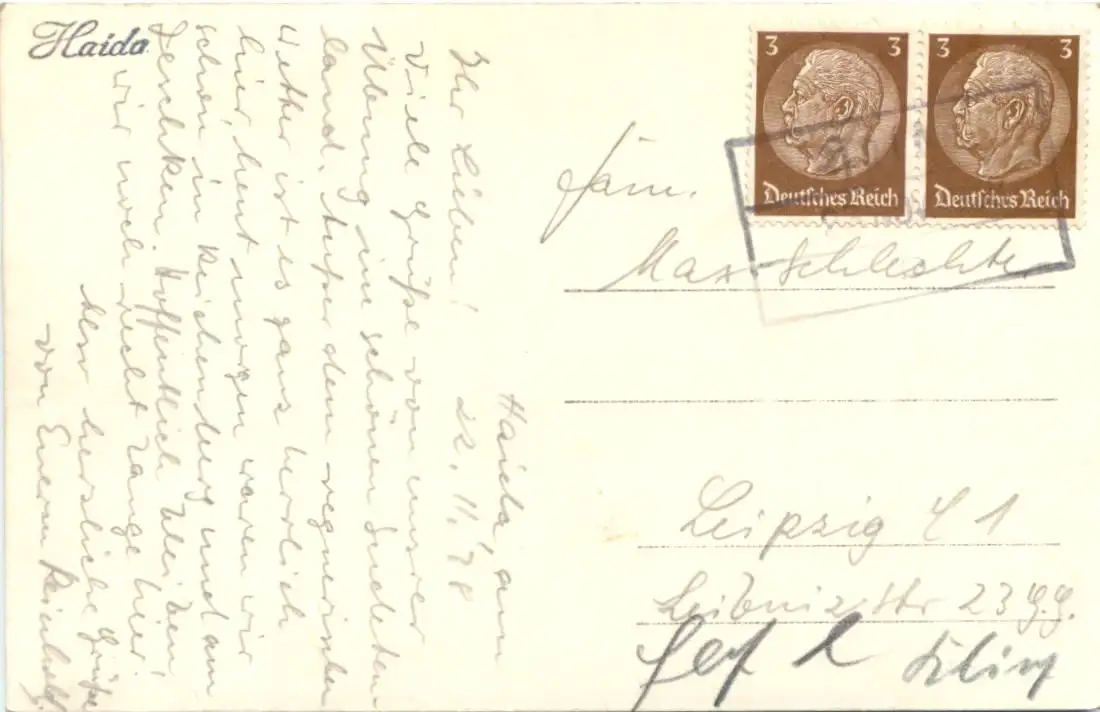 Haida
Haida, am
22. 11. 38
Ihr Lieben!
Viele Grüße von unserer
Übung im schönen Sudeten-
land. Außer dem regnerischen
Wetter ist es ganz herrlich
hier, heut morgen waren wir
schon in Reichenberg und am
Jeschken. Hoffentlich bleiben
wir noch recht lange hier!
herzliche Grüße
von Eurem
3 3
3 3
Deutsches Reich
Deutsches Reich
Fam.
Max Schlechte
Leipzig C 1
Leibnizstr 23